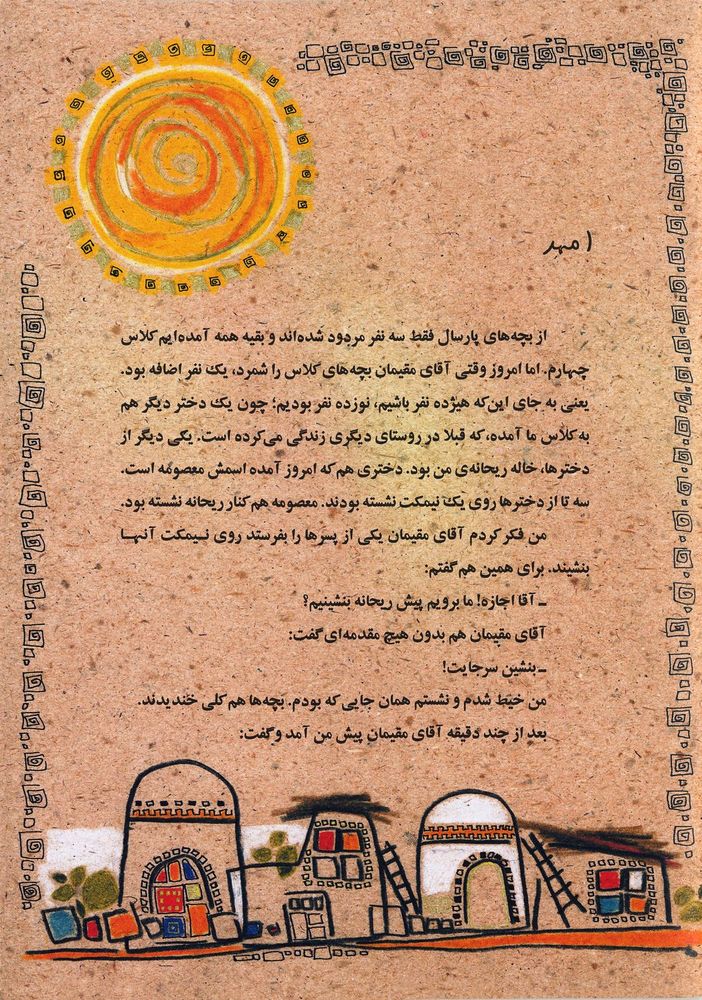 ۱ مهر
از بچه‌های پارسال فقط سه نفر مردود شده‌اند و بقیه همه آمده‌ایم کلاس
چهارم. اما امروز وقتی آقای مقیمان بچه‌های کلاس را شمرد، یک نفر اضافه بود.
یعنی به جای این‌که هیژده نفر باشیم، نوزده نفر بودیم؛ چون یک دختر دیگر هم
به کلاس ما آمده، که قبلا در روستای دیگری زندگی می‌کرده است. یکی دیگر از
دخترها، خاله ریحانه‌ی من بود. دختری هم که امروز آمده اسمش معصومه است.
سه تا از دخترها روی یک نیمکت نشسته بودند. معصومه هم کنار ریحانه نشسته بود.
من فکر کردم آقای مقیمان یکی از پسرها را بفرستد روی نیمکت آنها
بنشیند. برای همین هم گفتم:
ـ آقا اجازه! ما برویم پیش ریحانه بنشینیم؟
آقای مقیمان هم بدون هیچ مقدمه‌ای گفت:
ـ بنشین سرجایت!
من خیط شدم و نشستم همان جایی که بودم. بچه‌ها هم کلی خندیدند.
بعد از چند دقیقه آقای مقیمان پیش من آمد و گفت: